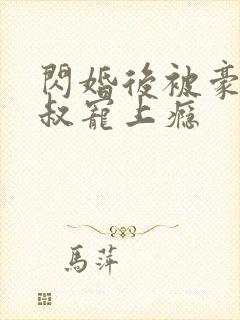 閃婚後被豪
叔寵上癮
馬萍